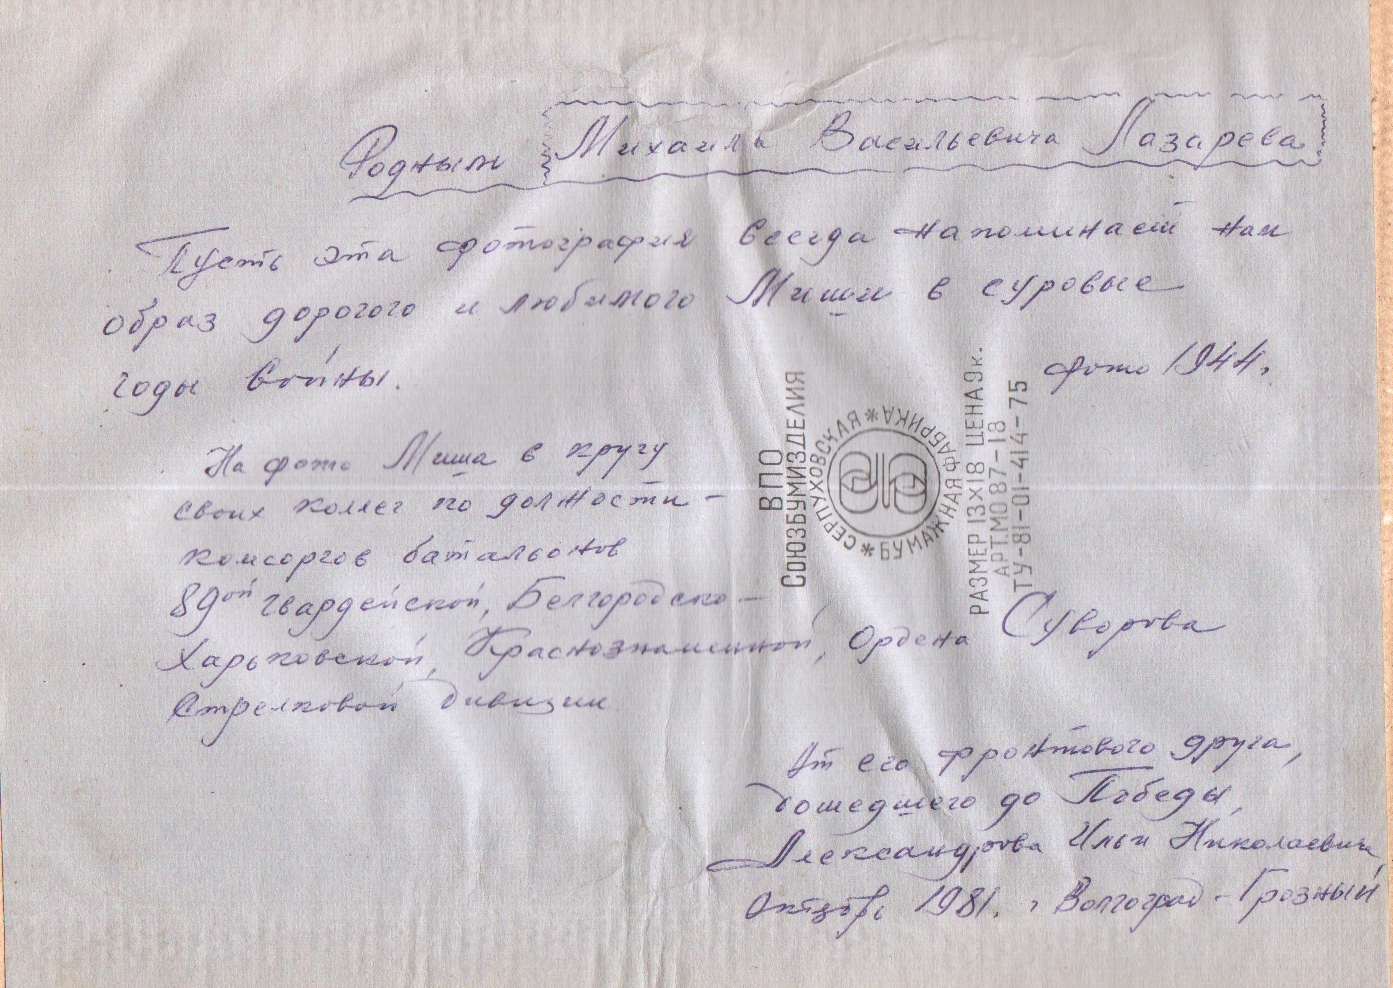 Родным Михаила Васильевича Лазарева
Пусть эта фотография всегда напоминает нам
образ дорогого и любимого Миши в суровые
годы войны.
фото 1944 г.
На фото Миша в кругу
своих коллег по должности –
комсоргов батальонов
89ой гвардейской, Белгородско –
Харьковской, Краснознаменной, Ордена Суворова
Стрелковой дивизии
От его фронтового друга,
дошедшего до Победы,
Александрова Ильи Николаевича,
Октябрь 1981 г. Волгоград – Грозный
ВПО
СОЮЗБУМИЗДЕЛИЯ
СЕРПУХОВСКАЯ * БУМАЖНАЯ ФАБРИКА *
РАЗМЕР 13X18 ЦЕНА 9к.
АРТ.МО 87-18
ТУ-81-01-414-75